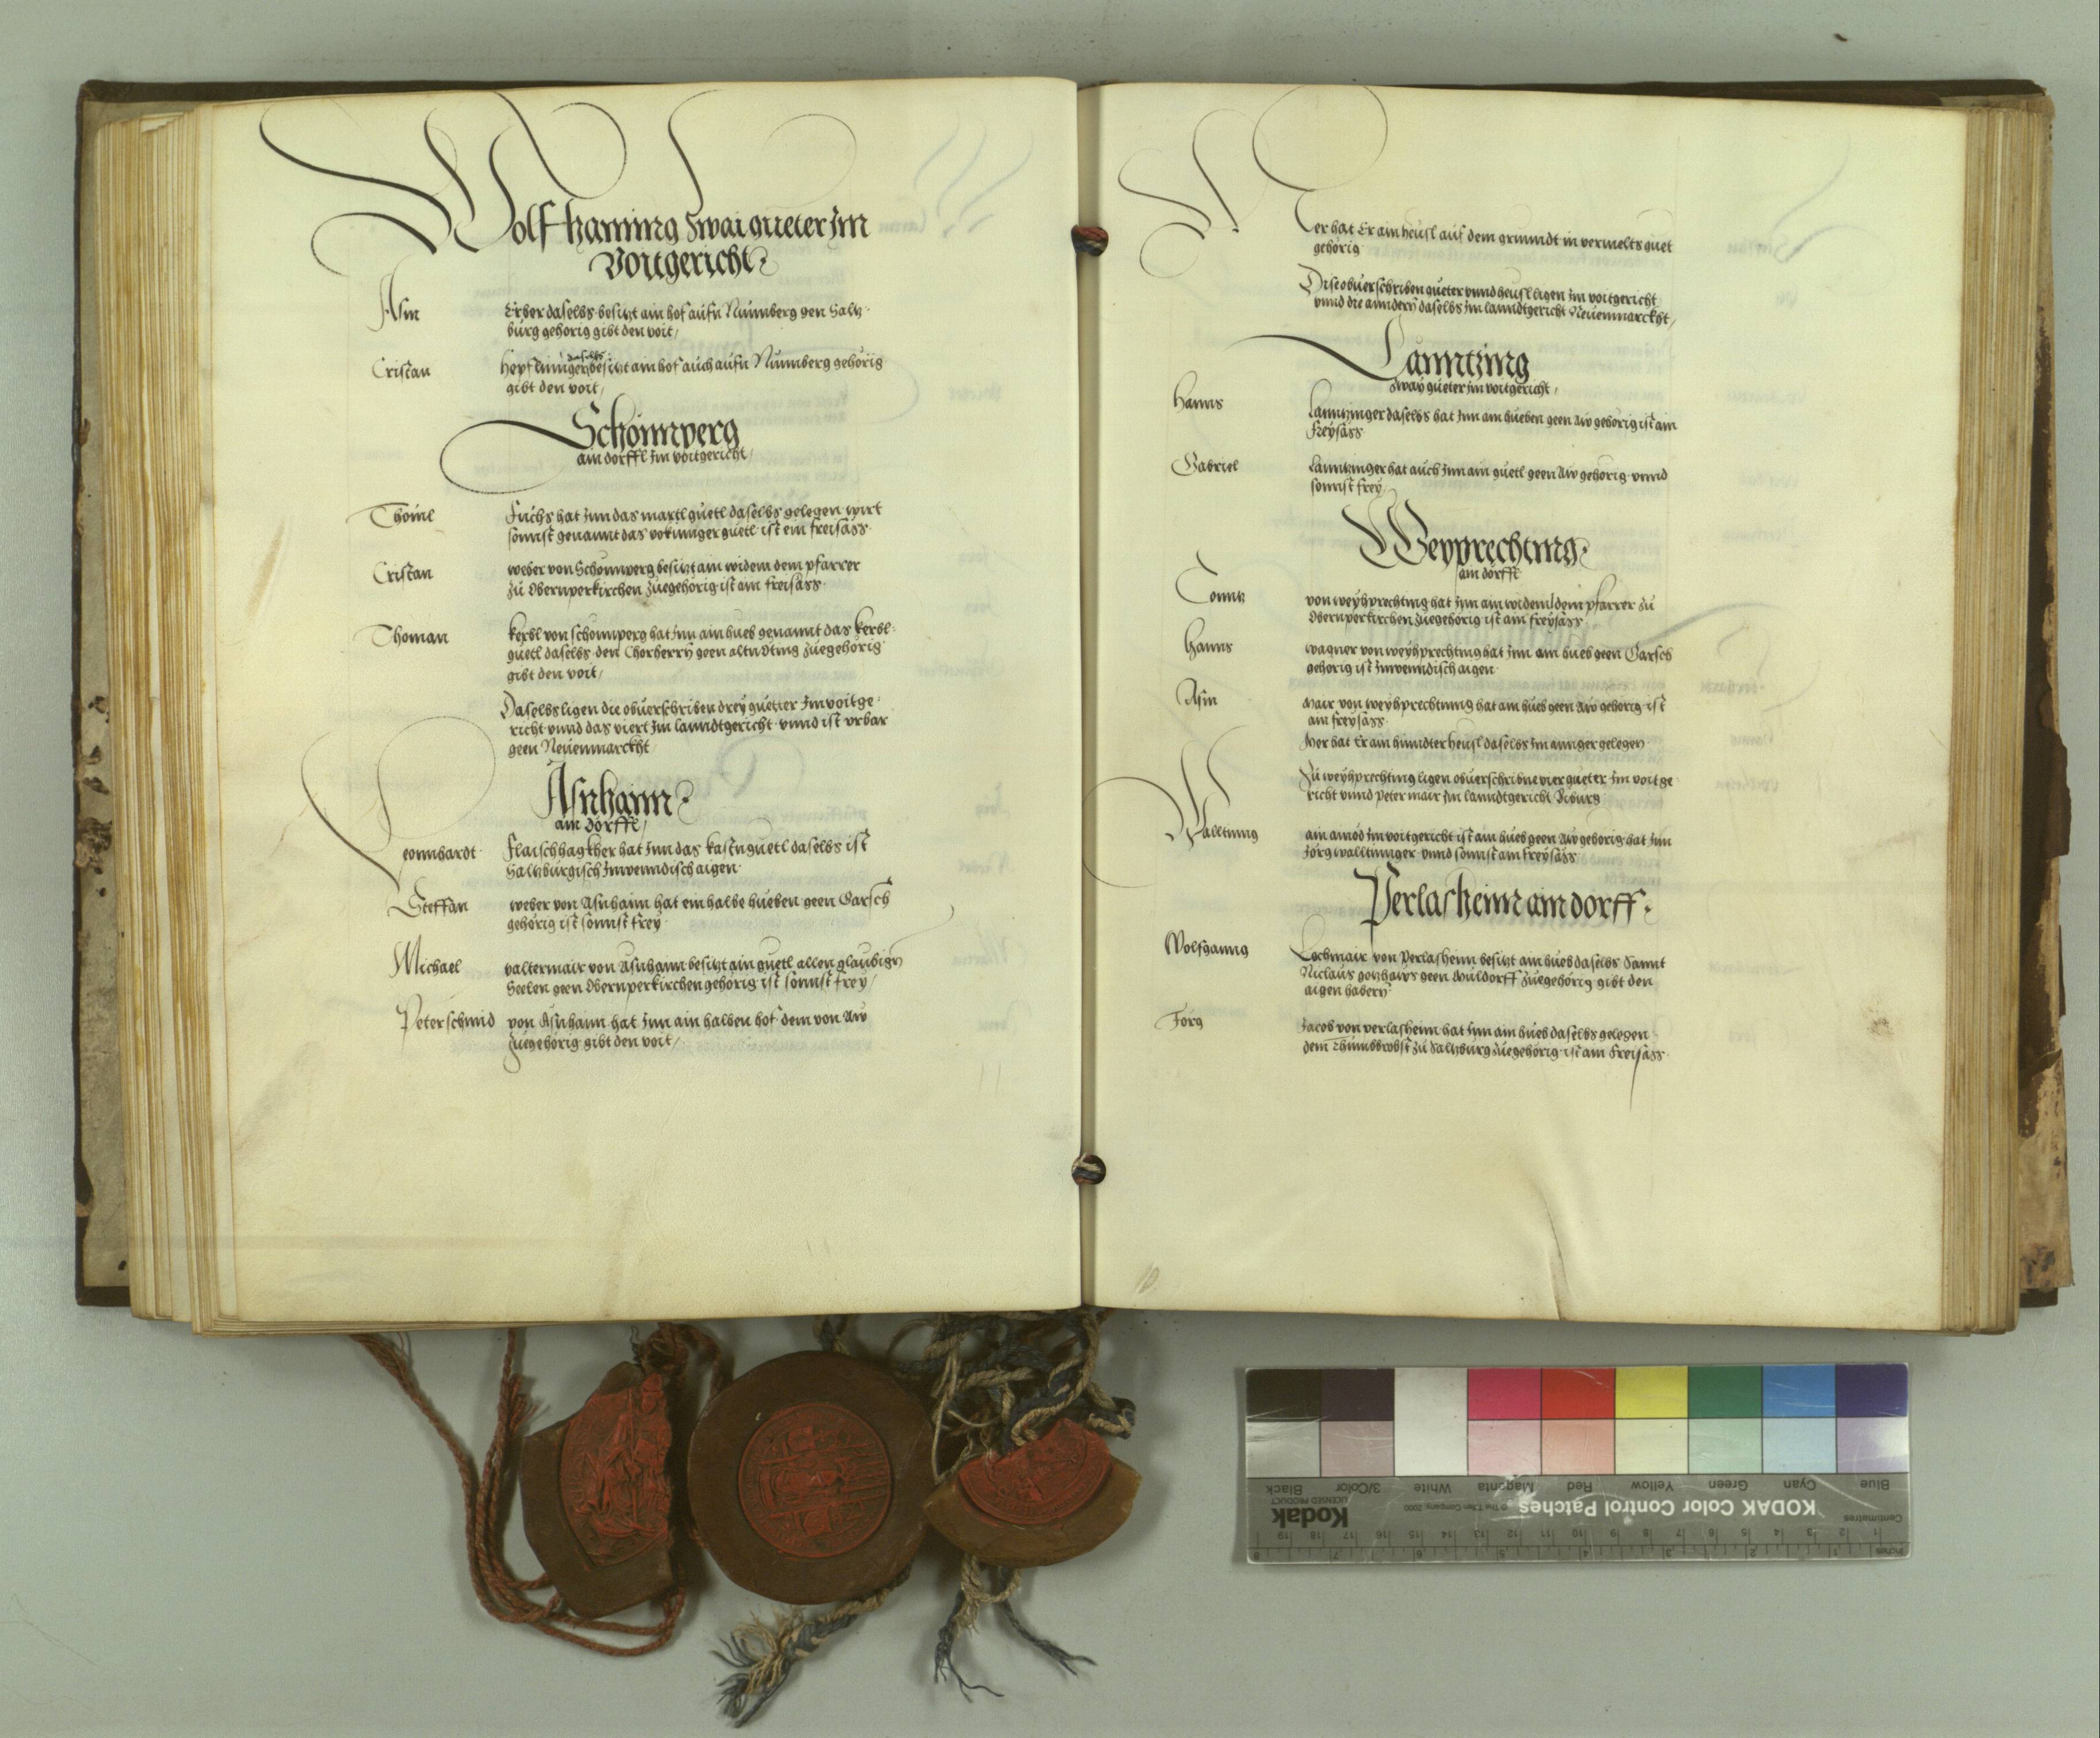 Wolfhaming zwai gueter Im
Voitgericht
Asm Erber daselbs besitzt ain hof aufn Nunnberg gen Saltz
burg gehorig gibt den voit
daselbs
Cristan besitzt ain hof auch aufn Nunnberg gehörig
gibt den voit
Schönnperg
ain dörffl Im voitgericht
Thöml Fuchs hat Inn das martl guetl daselbs gelegen wirt
sonnst genannt das guetl ist ein freisäss
Cristan weber von Schonnperg besitzt ain widem dem pfarrer
zu Obernperkirchen zuegehörig ist ain freisäss
Thoman kerbl von schonnperg hat Inn ain hueb genannt das kerbl
guetl daselbs den Chorherrn geen altn Öting zuegehörig
gibt den voit
Daselbs ligen die obuerschriben drey guetter Im voitge
richt vnnd das viert Im lanndtgericht vnnd ist vrbar
geen Neuenmarckht
Asnhaim
ain dörffl
Leonnhardt Flaischhagkher hat Inn das kastnguetl daselbs ist
Saltzburgisch Inwenndisch aigen
Steffan weber von Asnhaim hat ein halbe hueben geen Garsch
gehörig ist sonnst frey
Michael valtermair von Asnhaim besitzt ain guetl allen glaubign
Seelen geen Obernperkirchen gehörig ist sonnst frey
Peter schmid von Asnhaim hat Inn ain halben hof dem von Aw
zuegehörig gibt den voit
Mer hat Er ain heusl auf dem grunndt in vermelts guet
gehörig
Dise obuerschriben gueter vnnd heusl ligen Im voitgericht
vnnd die anndern daselbs Im lanndtgericht Neuenmarckht
Lanntzing
zway gueter Im voitgericht
Hanns Lanntzinger daselbs hat Inn ain hueben geen Aw gehörig ist ain
freysäss
Gabriel Lanntzinger hat auch Inn ain guetl geen Aw gehörig vnnd
sonnst frey
Weyprechting
ain dörffl
Conntz von weyhprechting hat Inn ain widem dem pfarrer zu
Obernperkirchen zuegehörig ist ain freysäss
Hanns wagner von weyhprechting hat Inn ain hueb geen Garsch
gehörig ist Inwenndisch aigen
Asm Mair von weyhprechtinng hat ain hueb geen Aw gehörig ist
ain freysäss
Mer hat Er ain hinndter heusl daselbs Im annger gelegen
Zu weyhprechting ligen obuerschribne vier gueter Im voitge
richt vnnd peter mair Im lanndtgericht
Walltinng ain ainöd Im voitgericht ist ain hueb geen Aw gehörig hat Inn
Jörg walltinnger vnnd sonnst ain freysäss
Perlasheim ain dorff
Wolfganng Lochmair von Perlasheim besitzt ain hueb daselbs Sannt
Niclaus gotzhaws geen Muldorff zuegehörig gibt den
aigen habern
Jörg Jacob von perlasheim hat Inn ain hueb daselbs gelegen
dem Thumbbrobst zu Saltzburg zuegehörig ist ain freisäss
10
KODAK Color Control Patches
Kodak
LICENSED PRODUCT
© The Tiffen Company, 2000
Blue Cyan Green Yellow Red Magenta White 3/Color Black
Centimetres
1 2 3 4 5 6 7 8 9 10 11 12 13 14 15 16 17 18 19
Inches
1 2 3 4 5 6 7 8